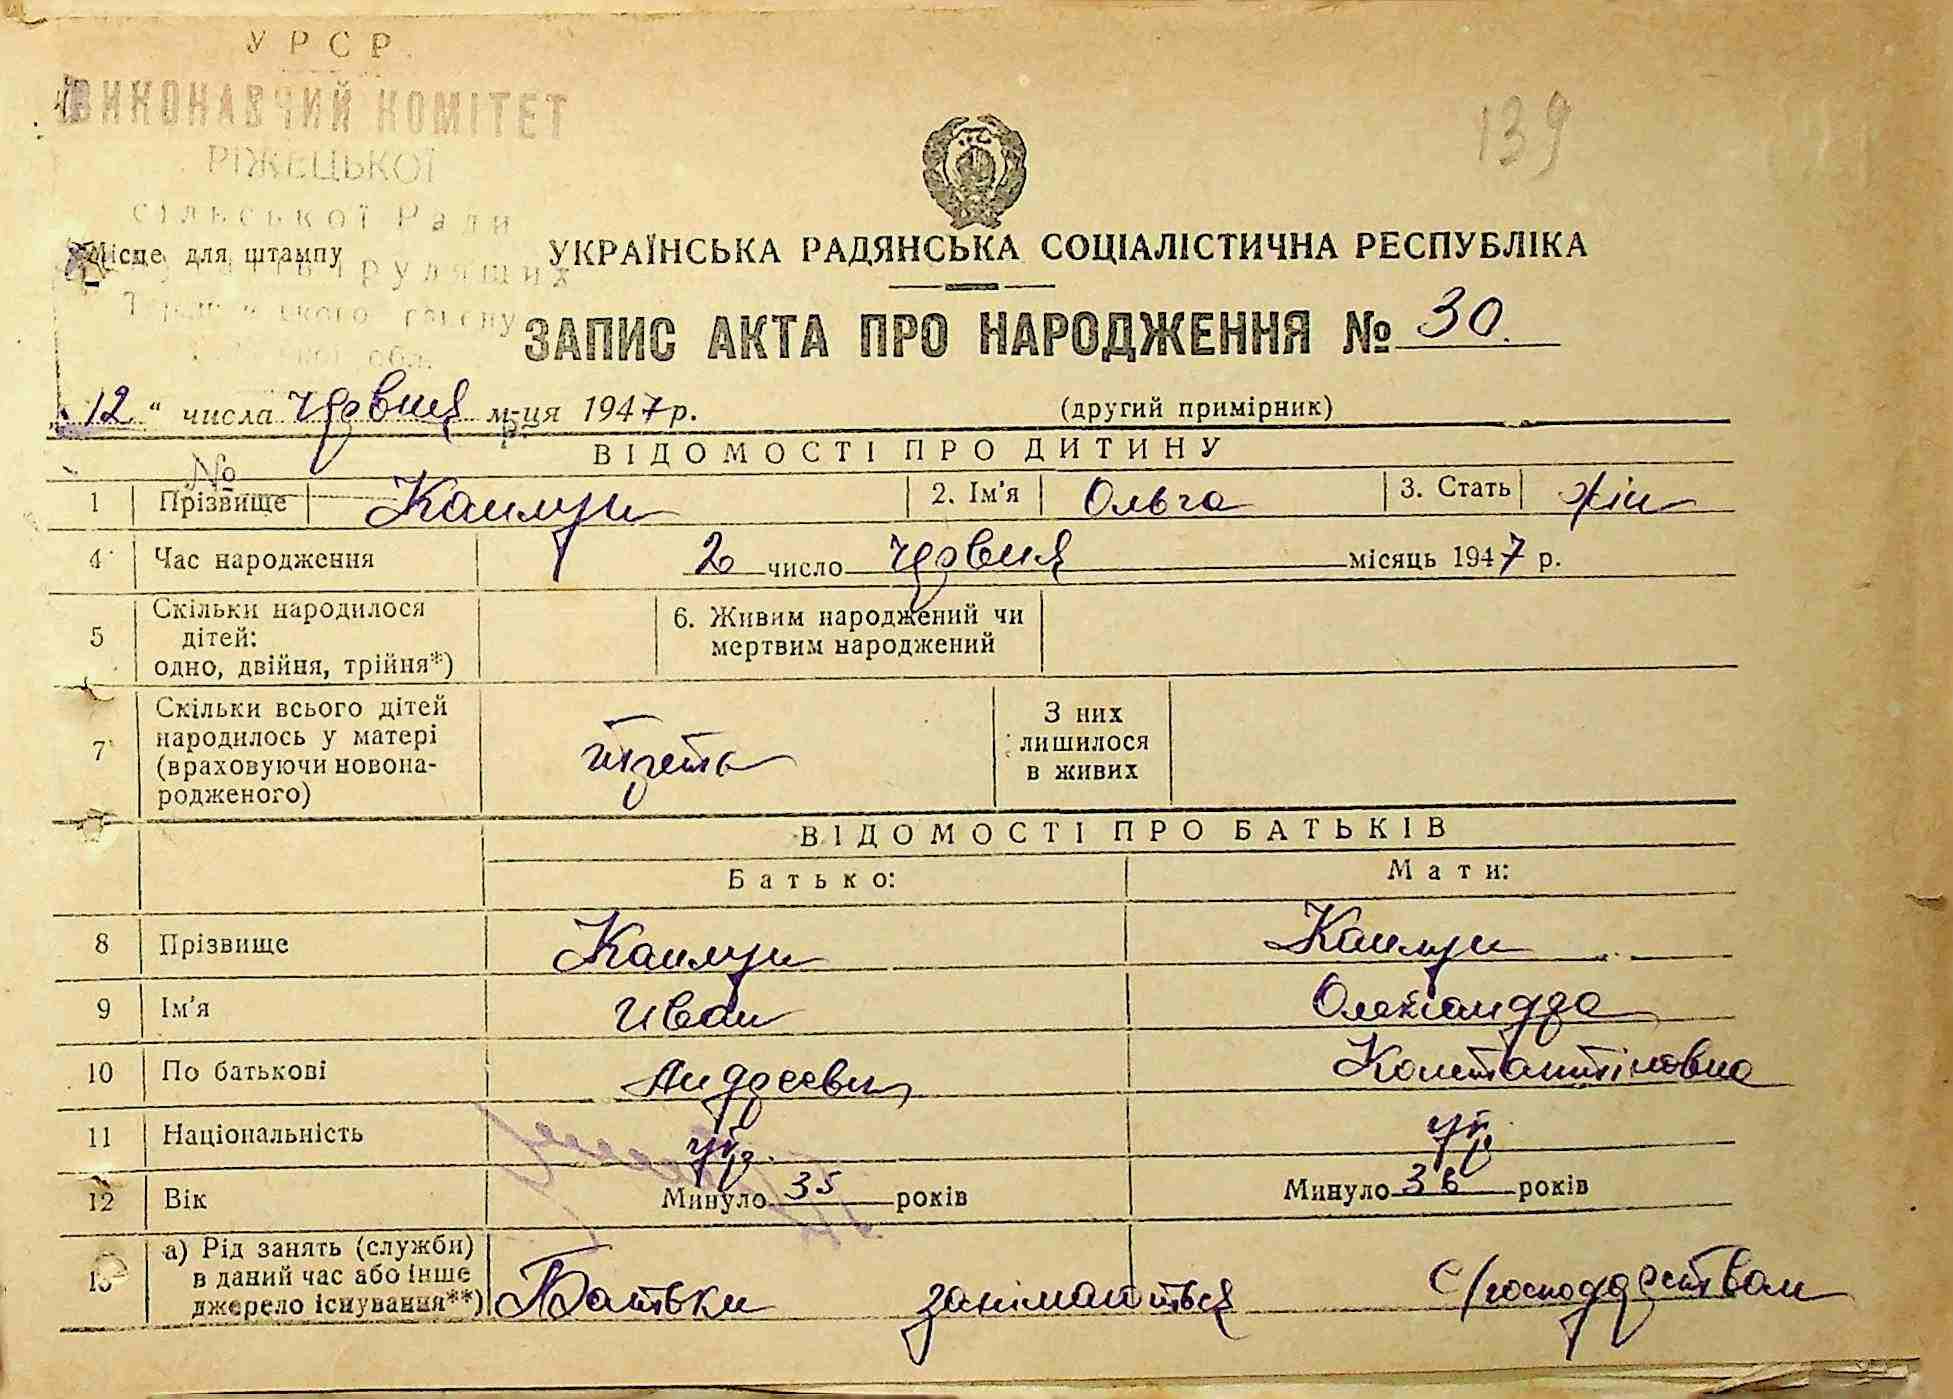 УРСР
ВИКОНАВЧИЙ КОМІТЕТ
РІЖЕЦЬКОЇ
сільської Ради
трудящих
Місце для штампу
обл.
139
УКРАЇНСЬКА РАДЯНСЬКА СОЦІАЛІСТИЧНА РЕСПУБЛІКА
ЗАПИС АКТА ПРО НАРОДЖЕННЯ № 30.
„12“ числа червня м-ця 1947 р. (другий примірник)
ВІДОМОСТІ ПРО ДИТИНУ
№
1 Прізвище 2. Ім'я Ольга 3. Стать жін
4 Час народження 2 число червня місяць 1947 р.
5 Скільки народилося дітей: одно, двійня, трійня*) 6. Живим народжений чи мертвим народжений
7 Скільки всього дітей народилось у матері (враховуючи новона-родженого) третя З них лишилося в живих
ВІДОМОСТІ ПРО БАТЬКІВ
Батько: Мати:
8 Прізвище
9 Ім'я Иван Олександра
10 По батькові Андреевич Константіновна
11 Національність укр. укр
12 Вік Минуло 35 років Минуло 36 років
13 а) Рід занять (служби) в даний час або інше джерело існування**) Батьки